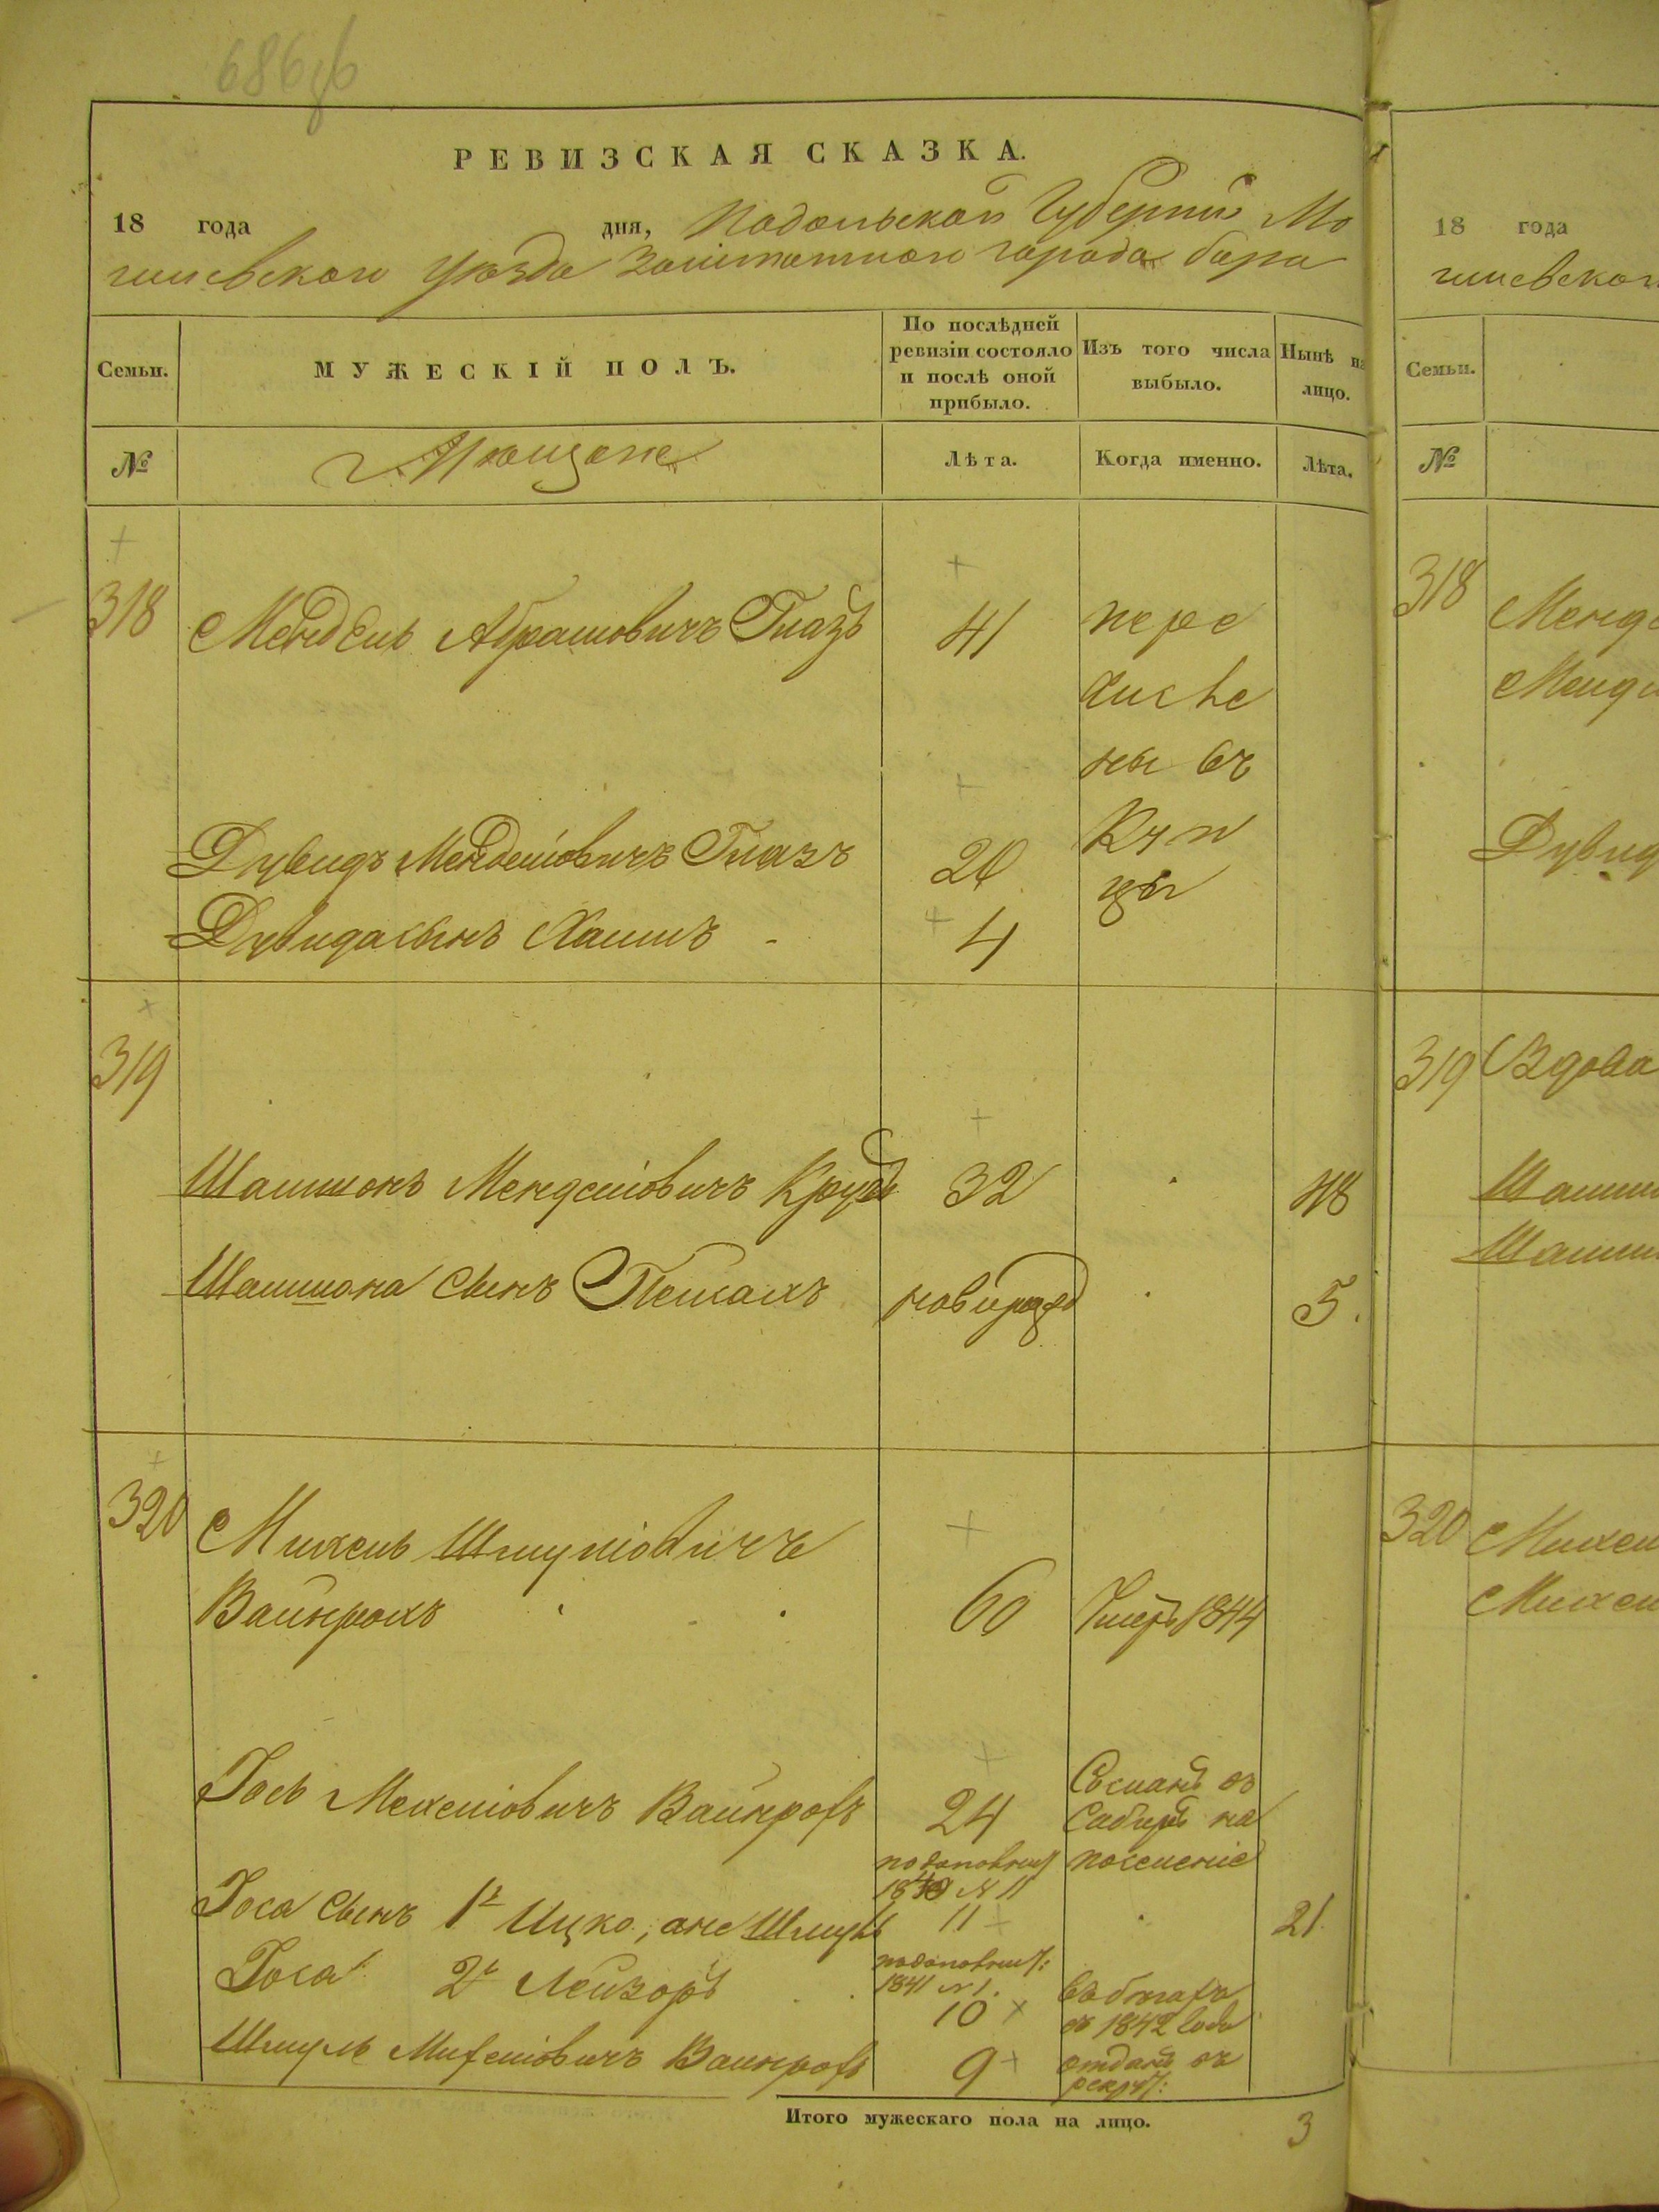 686об
РЕВИЗСКАЯ СКАЗКА.
18 года дня, Подольской Губерніи Мо
гилевскаго Уѣзда Заштатнаго города бара
Семьи.
МУЖЕСКІЙ ПОЛЪ.
По послѣдней ревизіи состояло и послѣ оной прибыло.
Изъ того числа выбыло.
Нынѣ на лицо.
№
Мѣщане
Лѣта.
Когда именно.
Лѣта.
318 Мендель Абрамовичъ Глазъ 41 пере
числе
ны въ
Дувидъ Менделіовичъ Глазъ 20 Куп
цы
Дувида сынъ Хаимъ 4
319
Шлимонъ Менделіовичъ 32 48
сынъ 5.
320 Михель Шмуліовичъ
Вайнрохъ 60 Умеръ 1844
Іось Михеліовичъ Вайнрохъ 24 Сосланъ въ
Сибирь на
поселеніе
подополнит
N 11
Іоса сынъ 1й Ицко, онже Шмуль 11 21.
подополнит:
1841 N 1.
Іоса 2й Лейзоръ 10 въ бѣгахъ
съ 1842 года
Шмуль Михеліовичъ Вайнрохъ 9 отданъ въ
рекрут:
Итого мужескаго пола на лицо. 3
18 года
гилевскаго
Семьи.
№
318
Дувид
319 Вдова
320 Михел
Михел